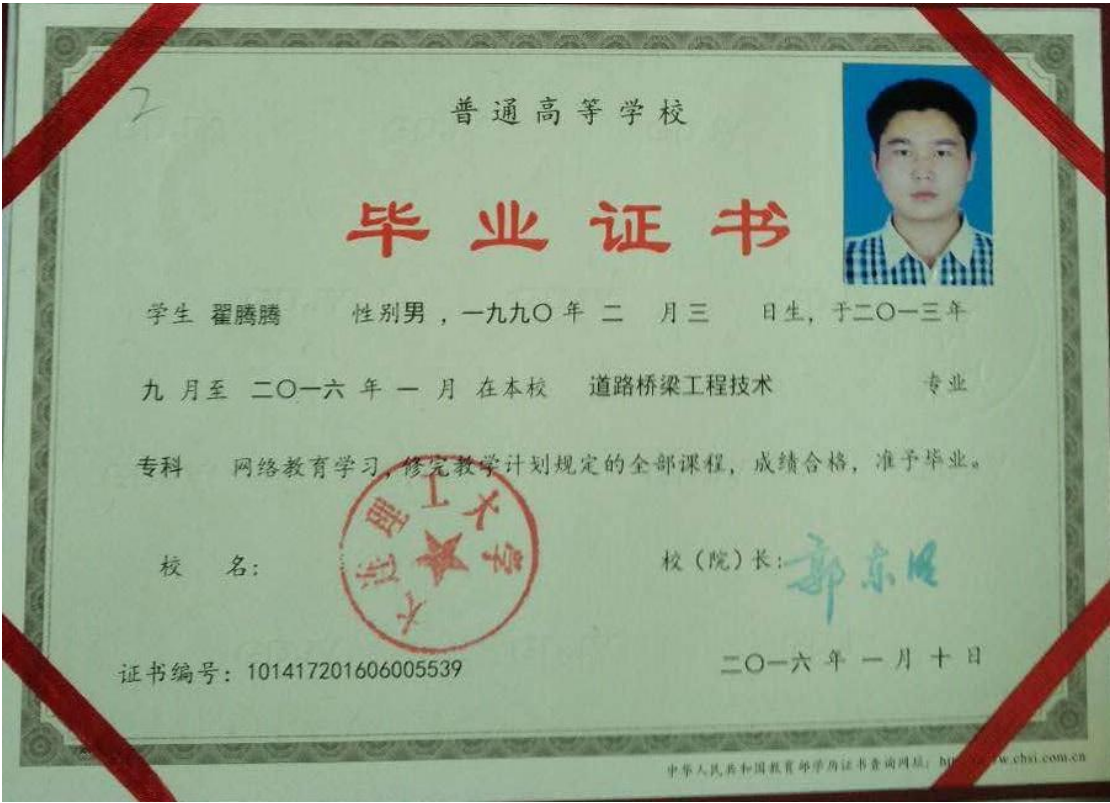 2
普通高等学校
毕业证书
学生 翟腾腾 性别男 ，一九九〇年 二 月三 日生，于二〇一三年
九 月至 二〇一六 年 一 月 在本校 道路桥梁工程技术 专业
专科 网络教育学习，修完教学计划规定的全部课程，成绩合格，准予毕业。
大连理工大学
校 名： 校（院）长：郭东明
证书编号：101417201606005539 二〇一六 年 一 月 十 日
中华人民共和国教育部学历证书查询网址： w.chsi.com.cn